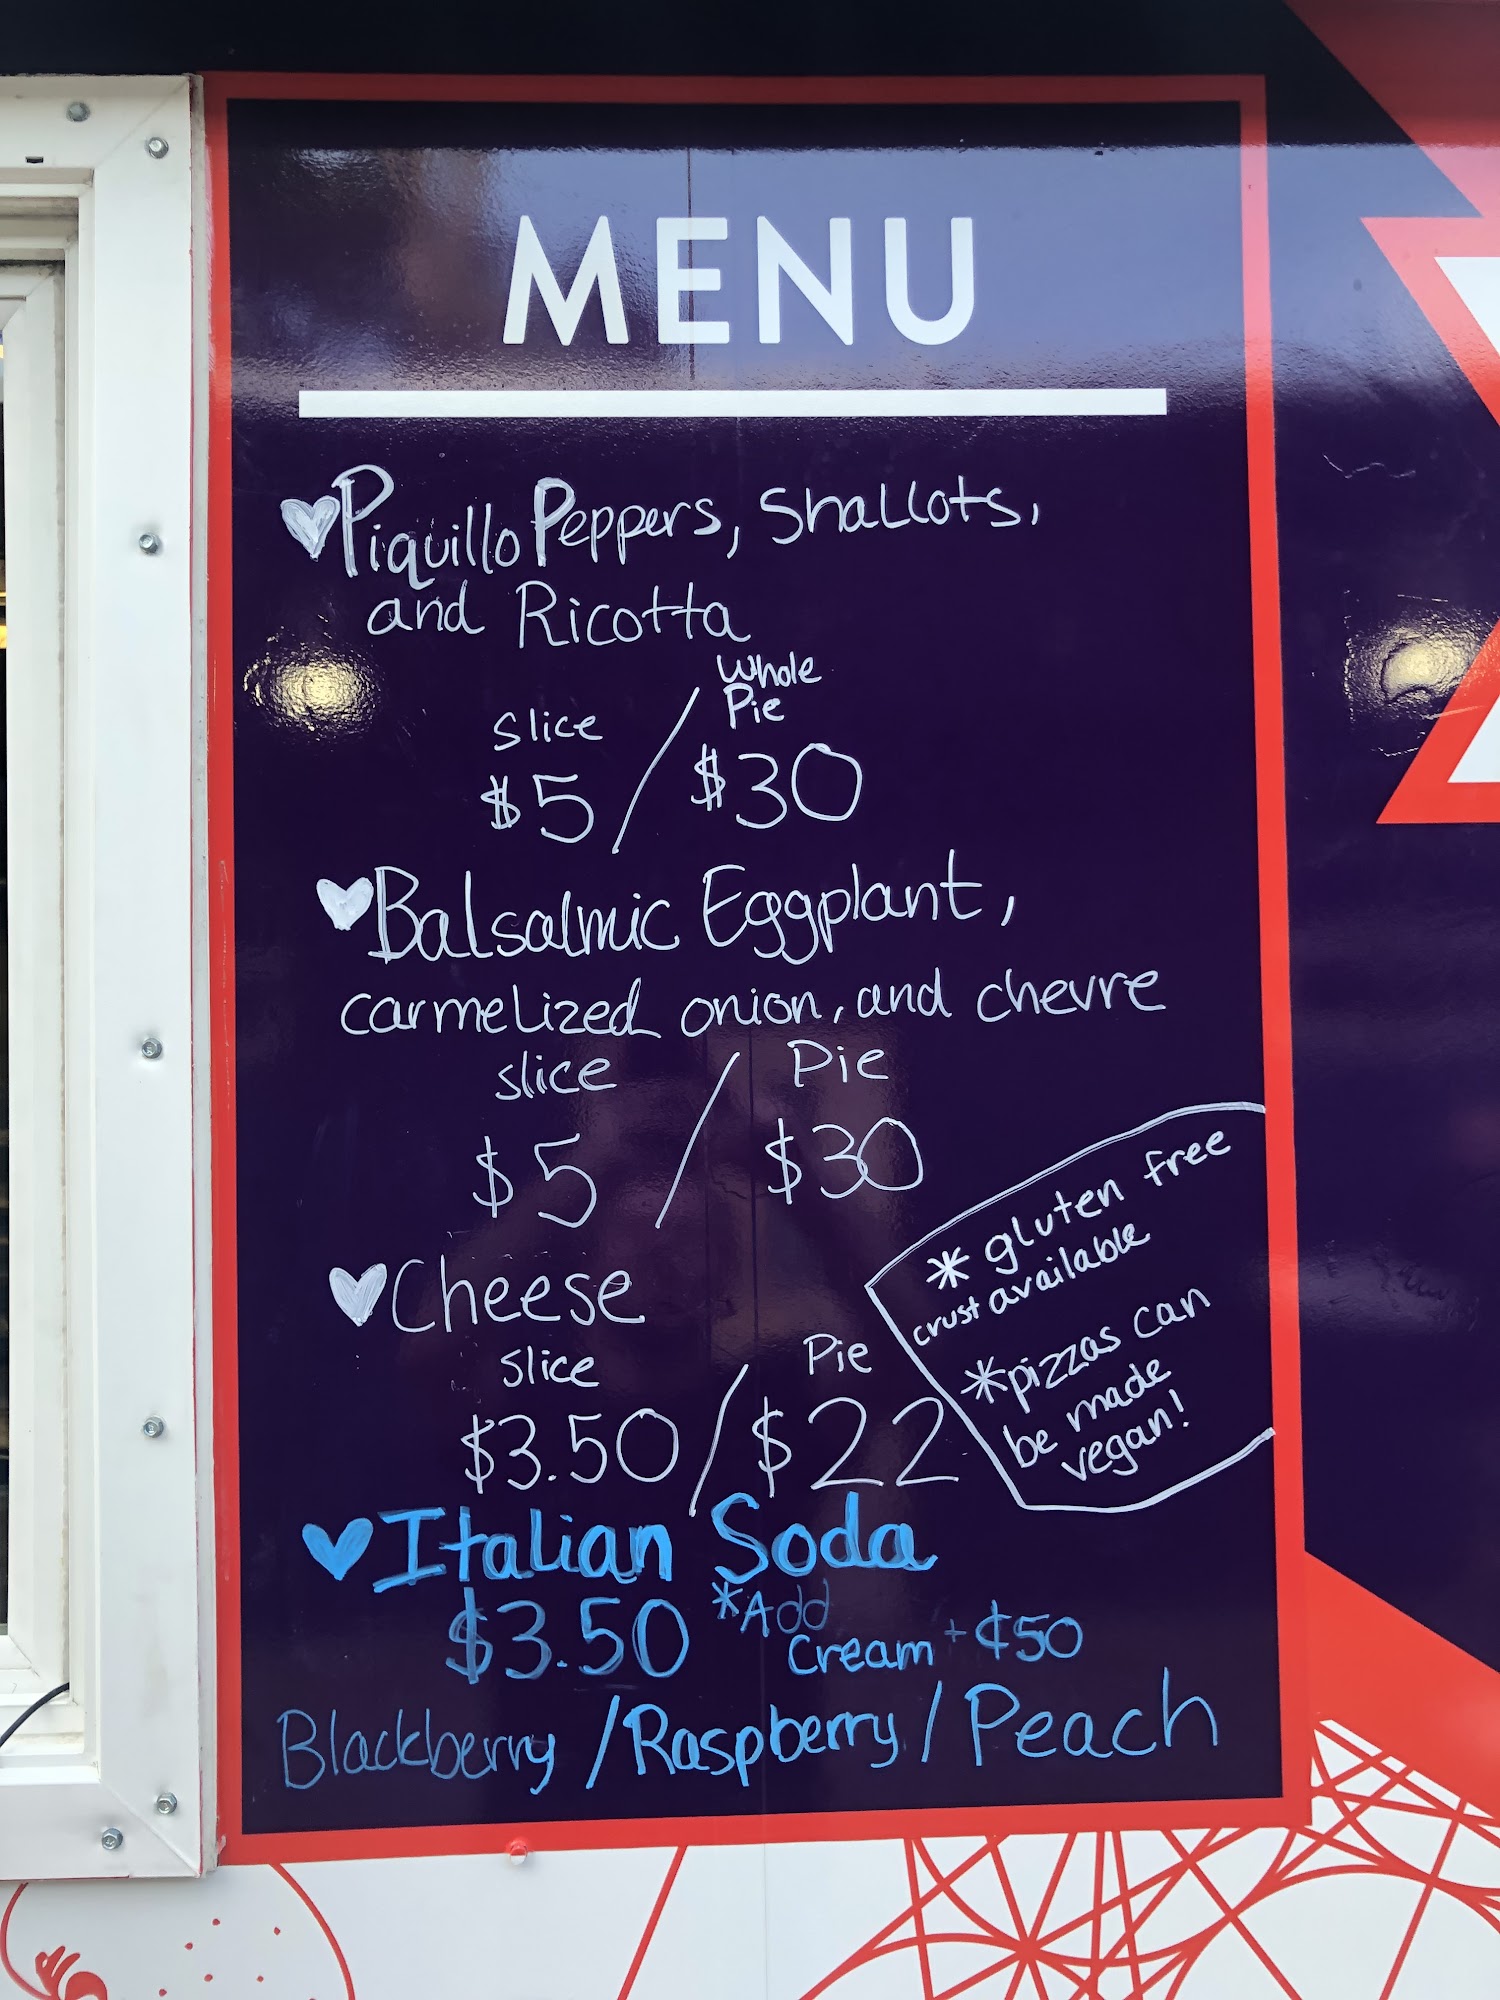 MENU
Piquillo Peppers, Shallots,
and Ricotta
Slice / Whole Pie
$5 / $30
Balsalmic Eggplant,
carmelized onion, and chevre
slice / Pie
$5 / $30
Cheese
slice / Pie
$3.50 / $22
* gluten free
crust available
*pizzas can
be made
vegan!
Italian Soda
$3.50 *Add
Cream + ¢50
Blackberry / Raspberry / Peach